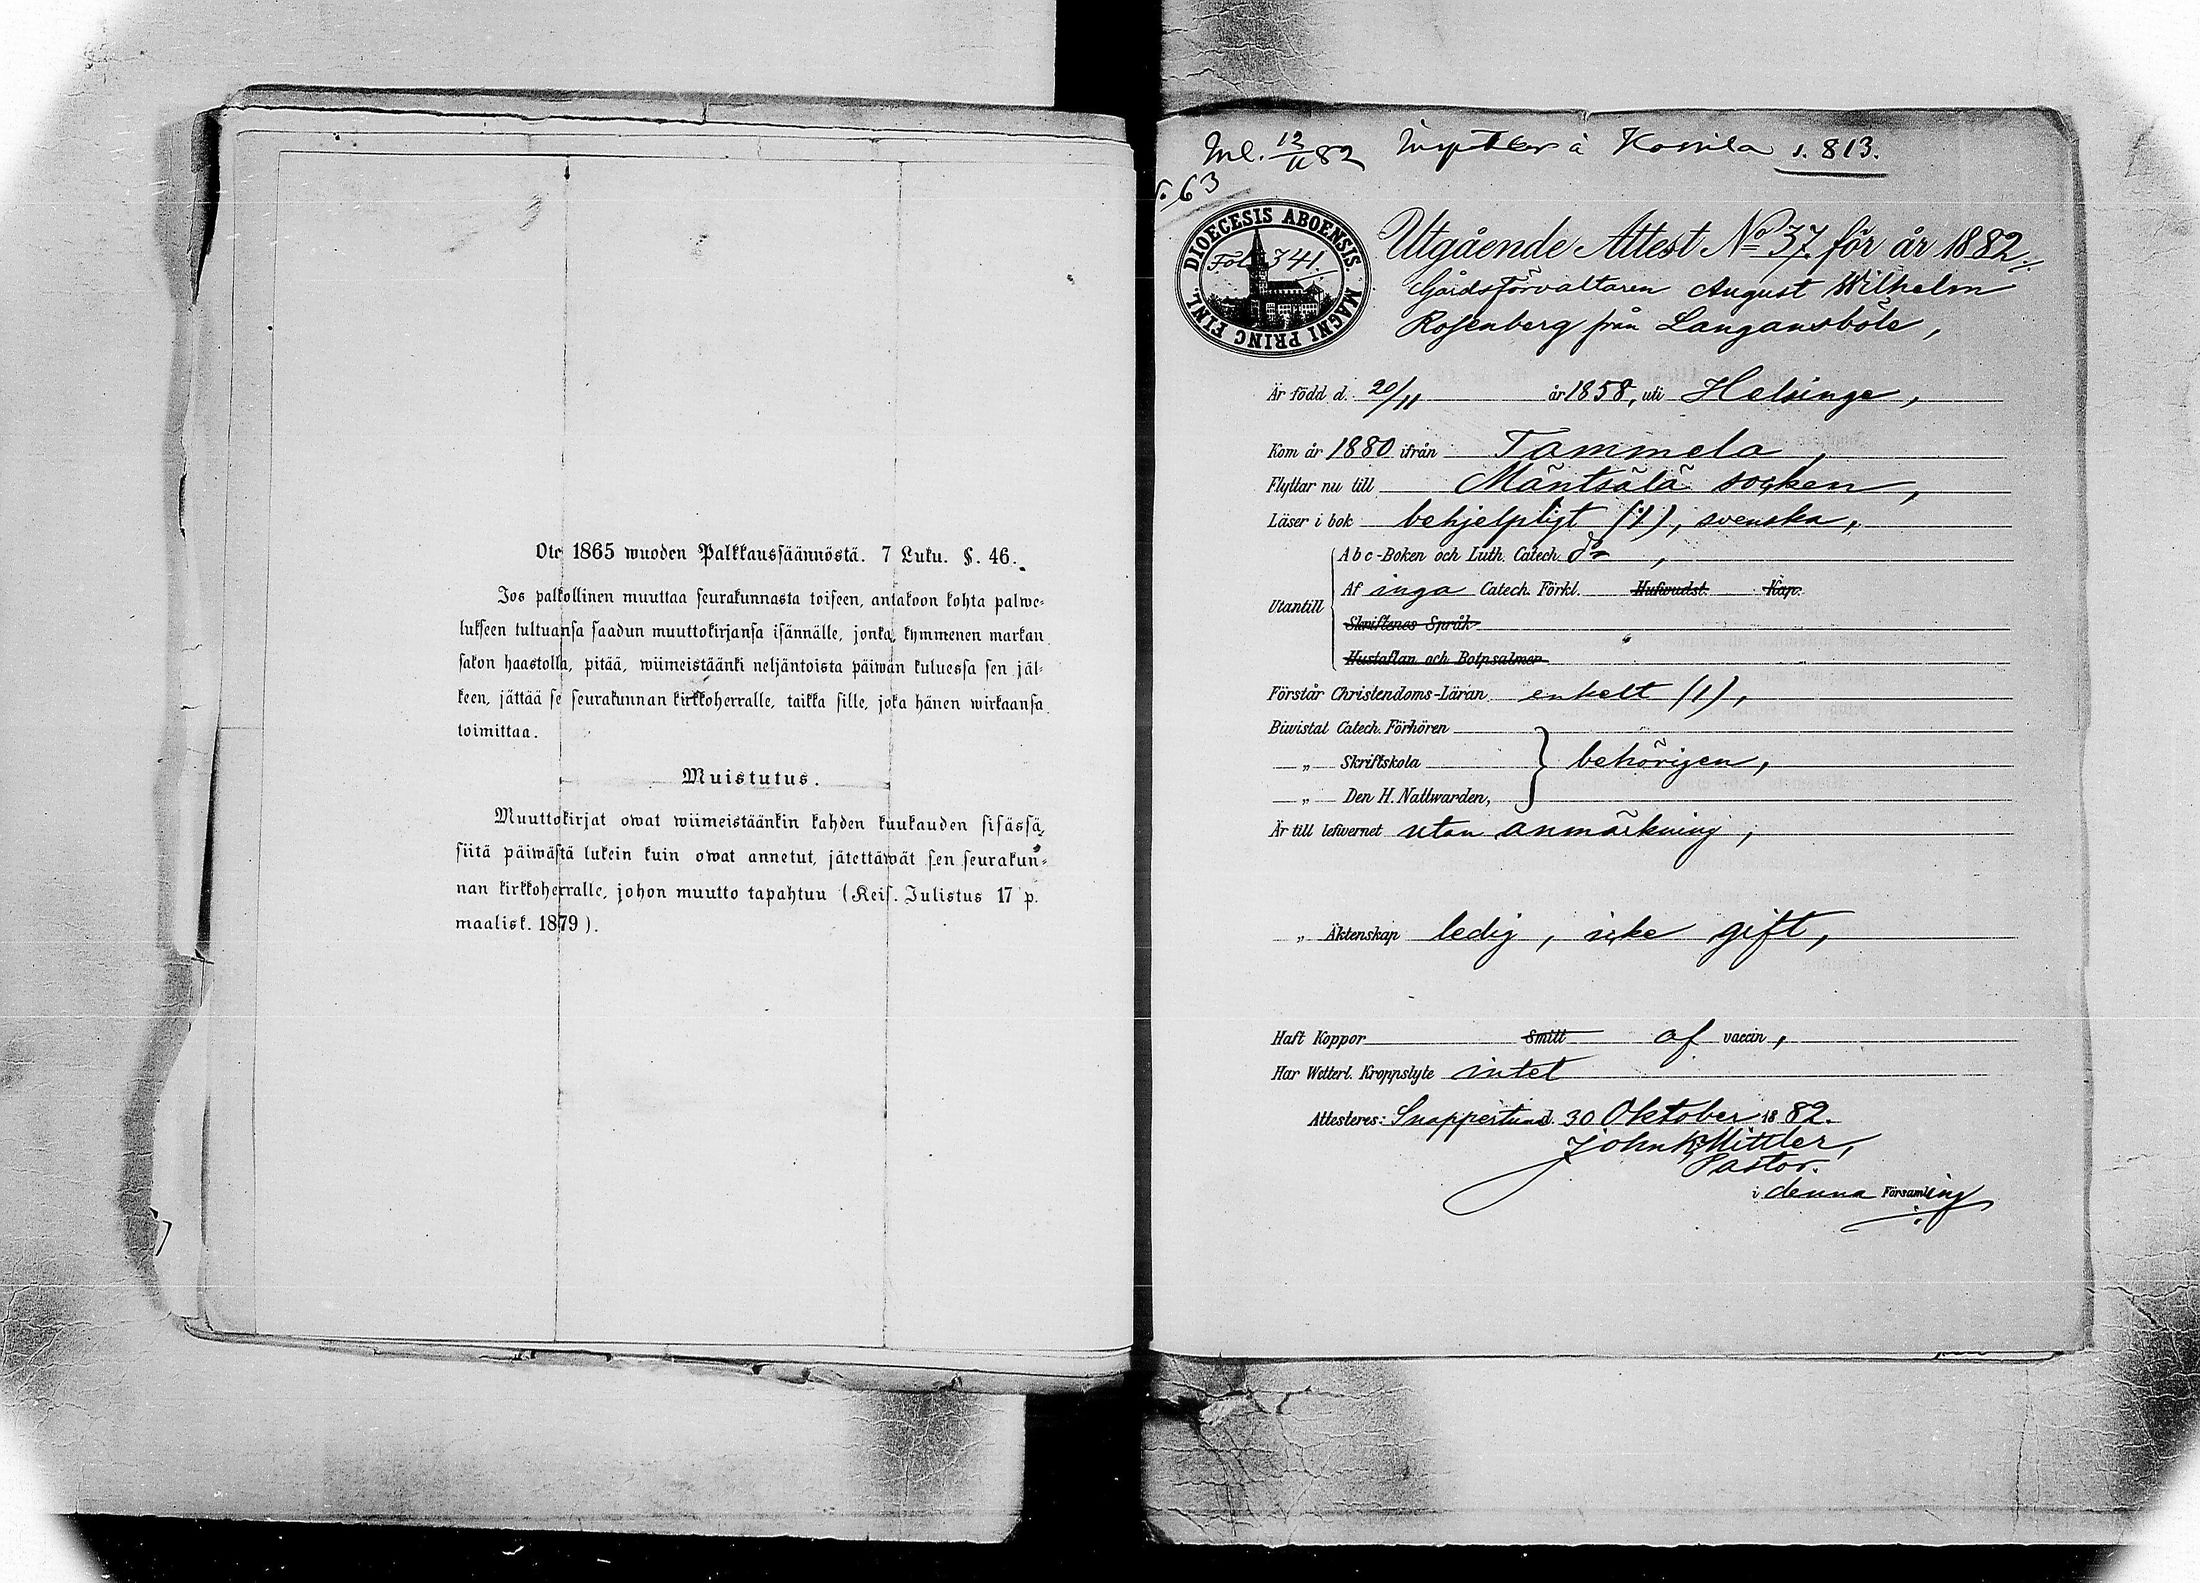 Ote 1865 wuoden Palkkaussäännöstä. 7 Luku. §. 46.
Jos palkollinen muuttaa seurakunnasta toiseen, antakoon kohta palwe=
lukseen tultuansa saadun muuttokirjansa isännälle, jonka, kymmenen markan
sakon haastolla, pitää, wiimeistäänki neljäntoista päiwän kuluessa sen jäl=
keen, jättää se seurakunnan kirkkoherralle, taikka sille, joka hänen wirkaansa
toimittaa.
Muistutus.
Muuttokirjat owat wiimeistäänkin kahden kuukauden sisässä,
siitä päiwästä lukein kuin owat annetut, jätettäwät sen seurakun=
nan kirkkoherralle, johon muutto tapahtuu (Keis. Julistus 17 p.
maalisk. 1879).
Inl. 12/11 82 å s. 813.
63
DIOECESIS ABOENSIS. MAGNI PRINC FINL.
Fol. 341.
Utgående Attest No 37 för år 1882
Gårdsförvaltaren August Wilhelm
Rosenberg från Langansböle,
Är född d. 20/11 år 1858, uti Helsinge,
Kom år 1880 ifrån Tammela,
Flyttar nu till Mäntsälä socken,
Läser i bok behjelpligt (1), svenska,
Utantill
Abc-Boken och Luth. Catech. do,
Af inga Catech. Förkl. Hufwudst. Kap.
Skriftenes Språk
Hustaflan och Botpsalmer
Förstår Christendoms-Läran enkelt (1),
Biwistat Catech. Förhören
„ Skriftskola behörigen,
„ Den H. Nattwarden,
Är till lefwernet utan anmärkning,
„ Äktenskap ledig, icke gift,
Haft Koppor Smitt af vaccin,
Har Wetterl. Kroppslyte intet
Attesteres: Snappertuna d. 30 Oktober 1882.
John K. Mittler,
Pastor.
i denna Församling